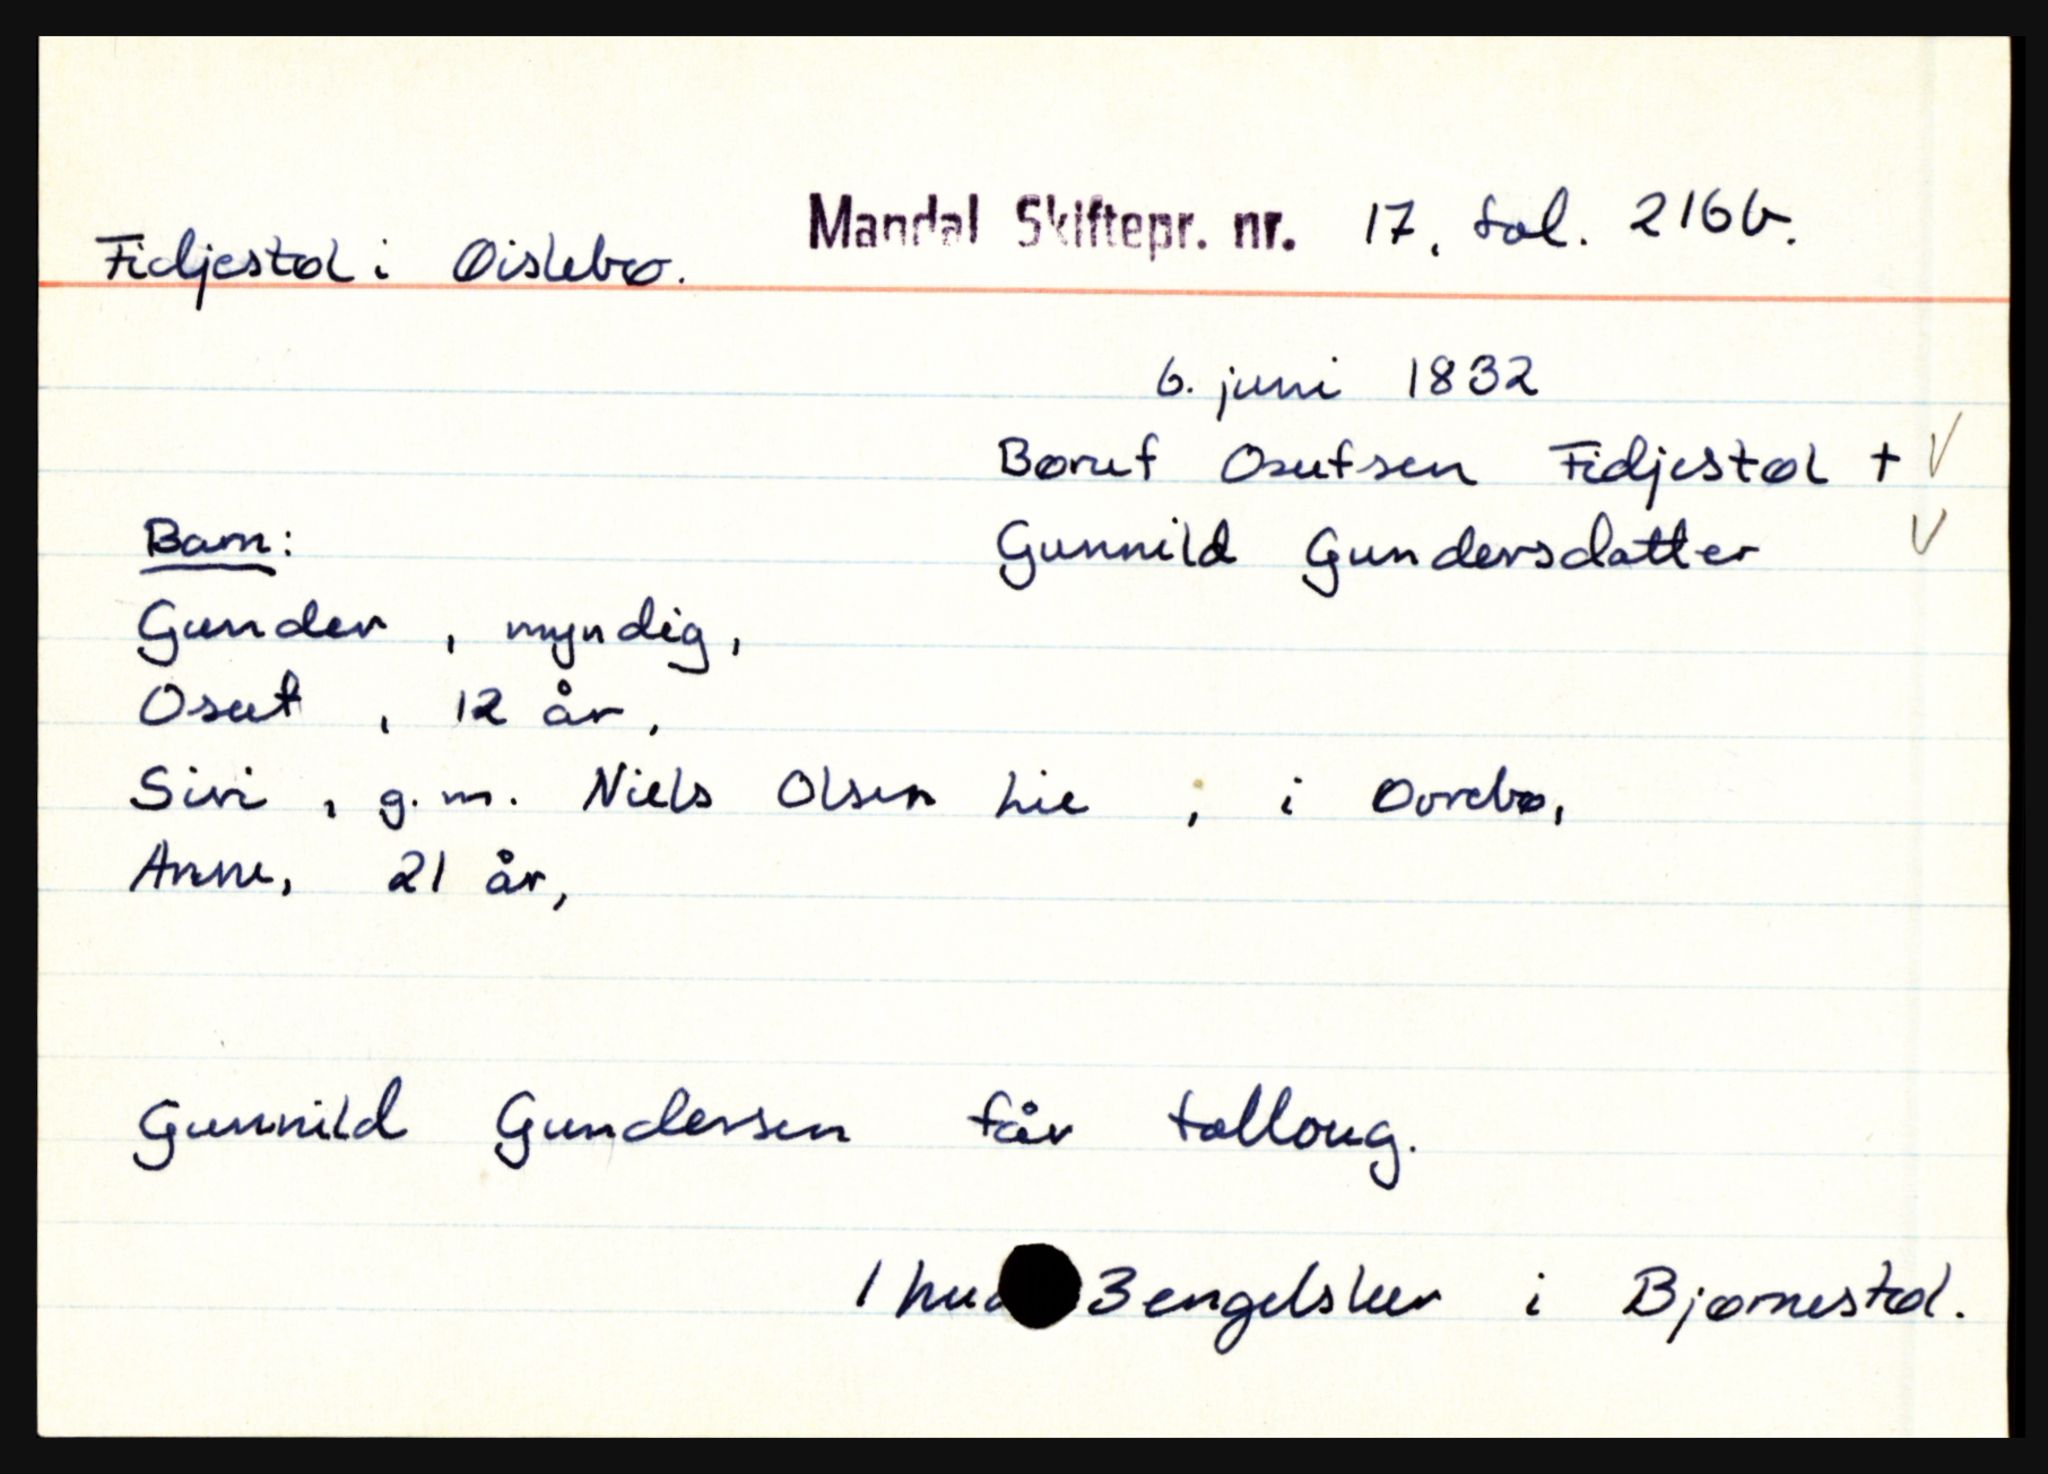 Mandal Skiftepr. nr. 17, fol. 216b.
Fidjestøl i Øislebø.
6. juni 1832
Børuf Osufsen Fidjestøl + V
Gunnild Gundersdatter V
Barn:
Gunder, myndig,
Osuf, 12 år,
Siri, g.m. Niels Olsen Lie, i Øvrebø,
Anne, 21 år,
Gunnild Gundersen får følloug.
1 hud 3 engelsker i Bjørnestøl.